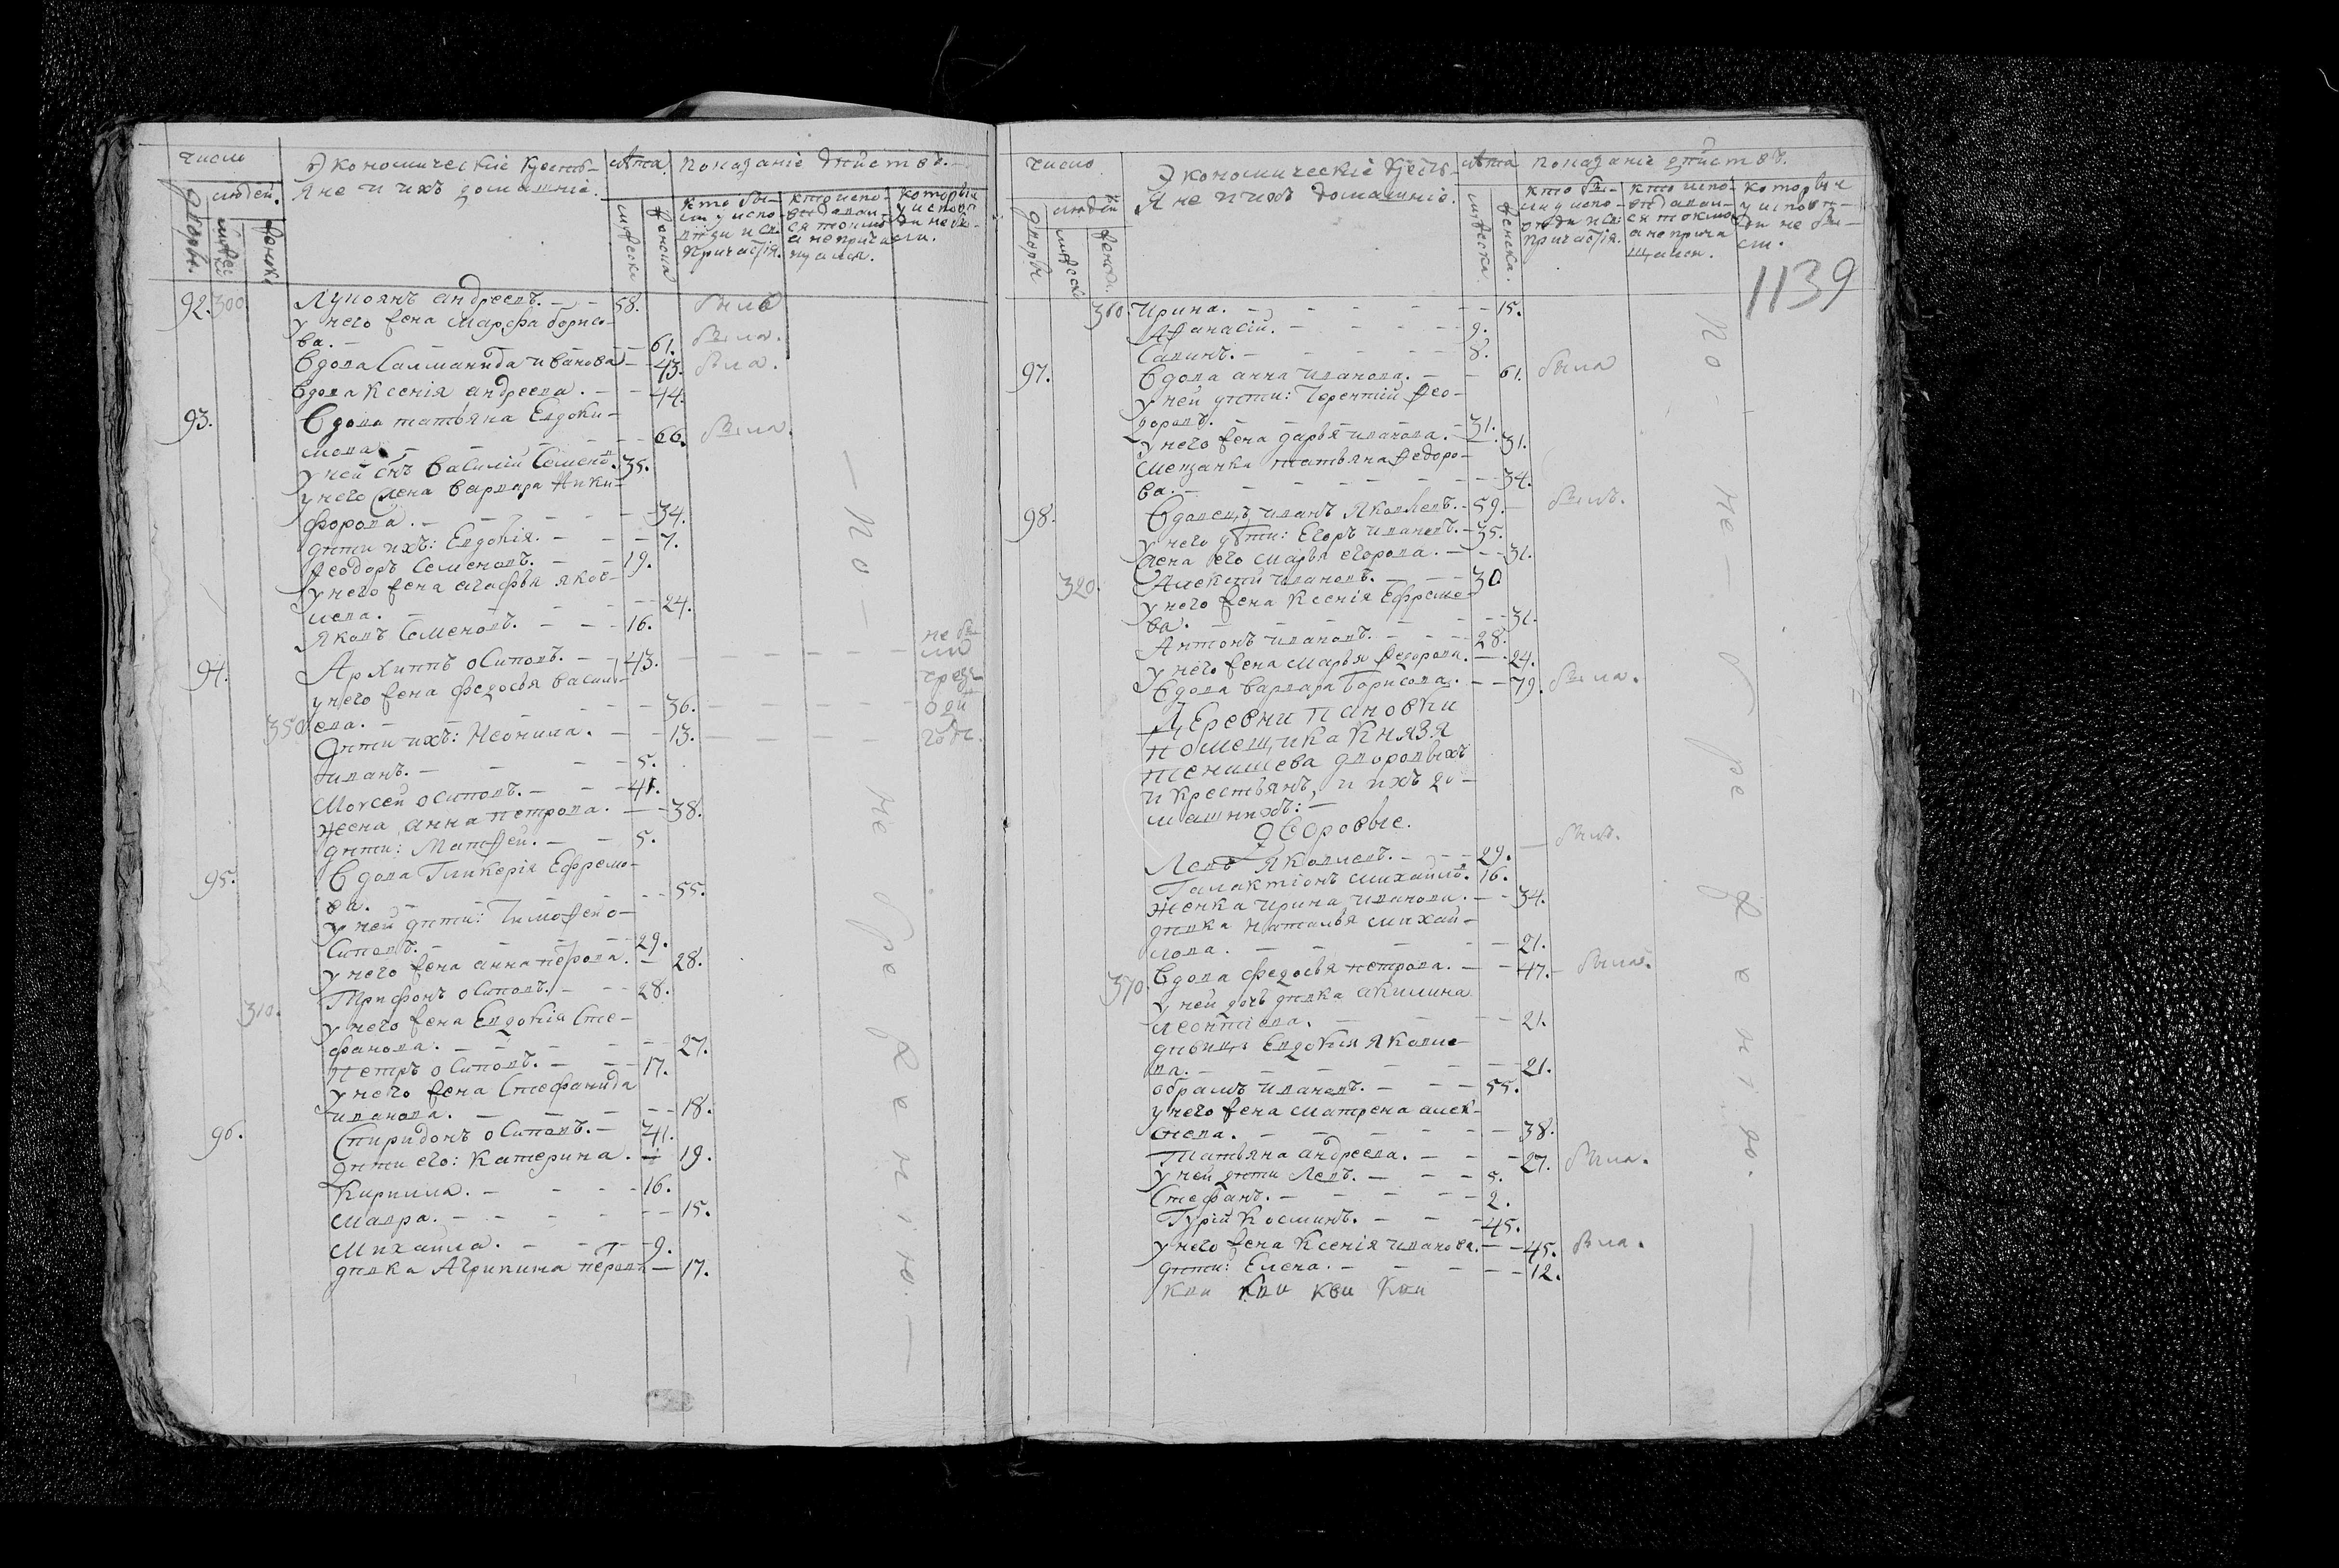 число
Экономическіе кресть-
яне и ихъ домашніе.
лѣта
показаніе дѣйствъ.
дворы.
людей.
мужес
женск
мужеска
женска
кто бы-
ли у испо-
вѣди и св:
причастія.
кто испо-
вѣдалли-
ся токмо
а неприча
щался.
которыи
у исповѣ
ди не бы-
ли.
92. 300 Лукоянъ андреевъ. 58. былъ
у него жена марѳа борисо-
ва. 61. была.
вдова Салманида иванова 43. была.
вдова Ксенія андреева. 44.
93. вдова татьяна Евдоки-
мова. 66. была.
у ней снъ василій Семенов. 35.
у него жена варвара Ники-
форова. 34.
дѣти ихъ: Евдокія. 7.
Ѳеодоръ Семеновъ. 19.
у него жена агафья яков-
лева. 24.
Яковъ Семеновъ. 16.
94. Архиппъ осиповъ. 43. не бы
ли
у него жена федосья васил- чрез
350 ева. 36. оди
дѣти ихъ: Неонила. 13. годъ.
иванъ. 5.
Моѵсей осиповъ. 41.
жена анна петрова. 38.
дѣти: Матѳей. 5.
95. вдова Гликерія Ефремо-
ва. 55.
у ней дѣти: Тимоѳей о-
Сиповъ. 29.
у него жена анна петрова. 28.
Трифонъ осиповъ. 28.
310. у него жена Евдокія Сте-
фанова. 27.
Петръ осиповъ. 17.
у него жена Стефанида
иванова. 18.
96. Спиридонъ осиповъ. 41.
дѣти его: Катерина. 19.
Кирилла. 16.
мавра. 15.
михайла. 9.
дѣвка Агрипина петрова 17.
по небреженію.
число
Экономическіе кресть-
яне и ихъ домашніе.
лѣта
показаніе дѣйствъ.
дворы
людей
мужеск
женск.
мужеска.
женска.
кто бы-
ли у испо-
вѣди и св:
причастія.
кто испо-
вѣдали-
ся токмо
а неприча
щались.
которыи
у исповѣ-
ди не бы-
ли.
1139
360 Ирина. 15.
Аѳанасій. 9.
Савинъ. 8.
97. вдова анна иванова. 61. была
у ней дѣти: Терентій Ѳео-
доровъ. 31.
у него жена дарья иванова. 31.
мещанка татьяна Ѳедоро-
ва. 34.
98. вдовецъ иванъ Яковлевъ. 59. былъ.
у него дѣти: Егоръ ивановъ. 35.
жена его марья егорова. 31.
320. Алексѣй ивановъ. 30
у него жена Ксенія Ефремо-
ва. 31.
Антонъ ивановъ. 28.
у него жена марья Ѳедорова. 24.
вдова варвара борисова. 79. была.
Деревни пановки
помещика Князя
тенишева дворовыхъ
и крестьянъ, и ихъ до-
машнихъ:
Дворовые.
Левъ Яковлевъ. 29. былъ.
Галактіонъ михайло. 16.
женка ирина иванова. 34.
дѣвка наталья михай-
лова. 21.
вдова федосья петрова. 47. была.
370. у ней дочь дѣвка акилина
леонтіева. 21.
дѣвица Евдокия яковле-
ва. 21.
абрамъ ивановъ. 55.
у него жена матрена алек-
сѣева. 38.
Татьяна андреева. 27. была.
у ней дѣти Левъ. 5.
Стефанъ. 2.
Гурій Косминъ. 45.
у него жена Ксенія иванова. 45. была.
дѣти: Елена. 12.
Кви Кви Кви Кви
по небреженію.